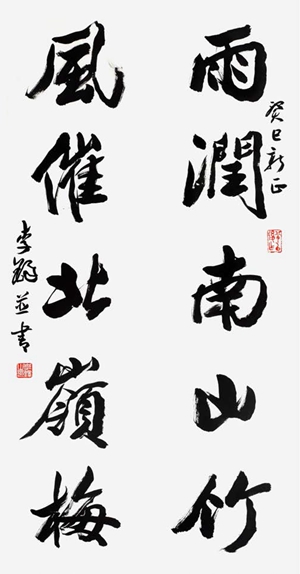 雨潤南山竹
癸巳新正
風催北嶺梅
並書